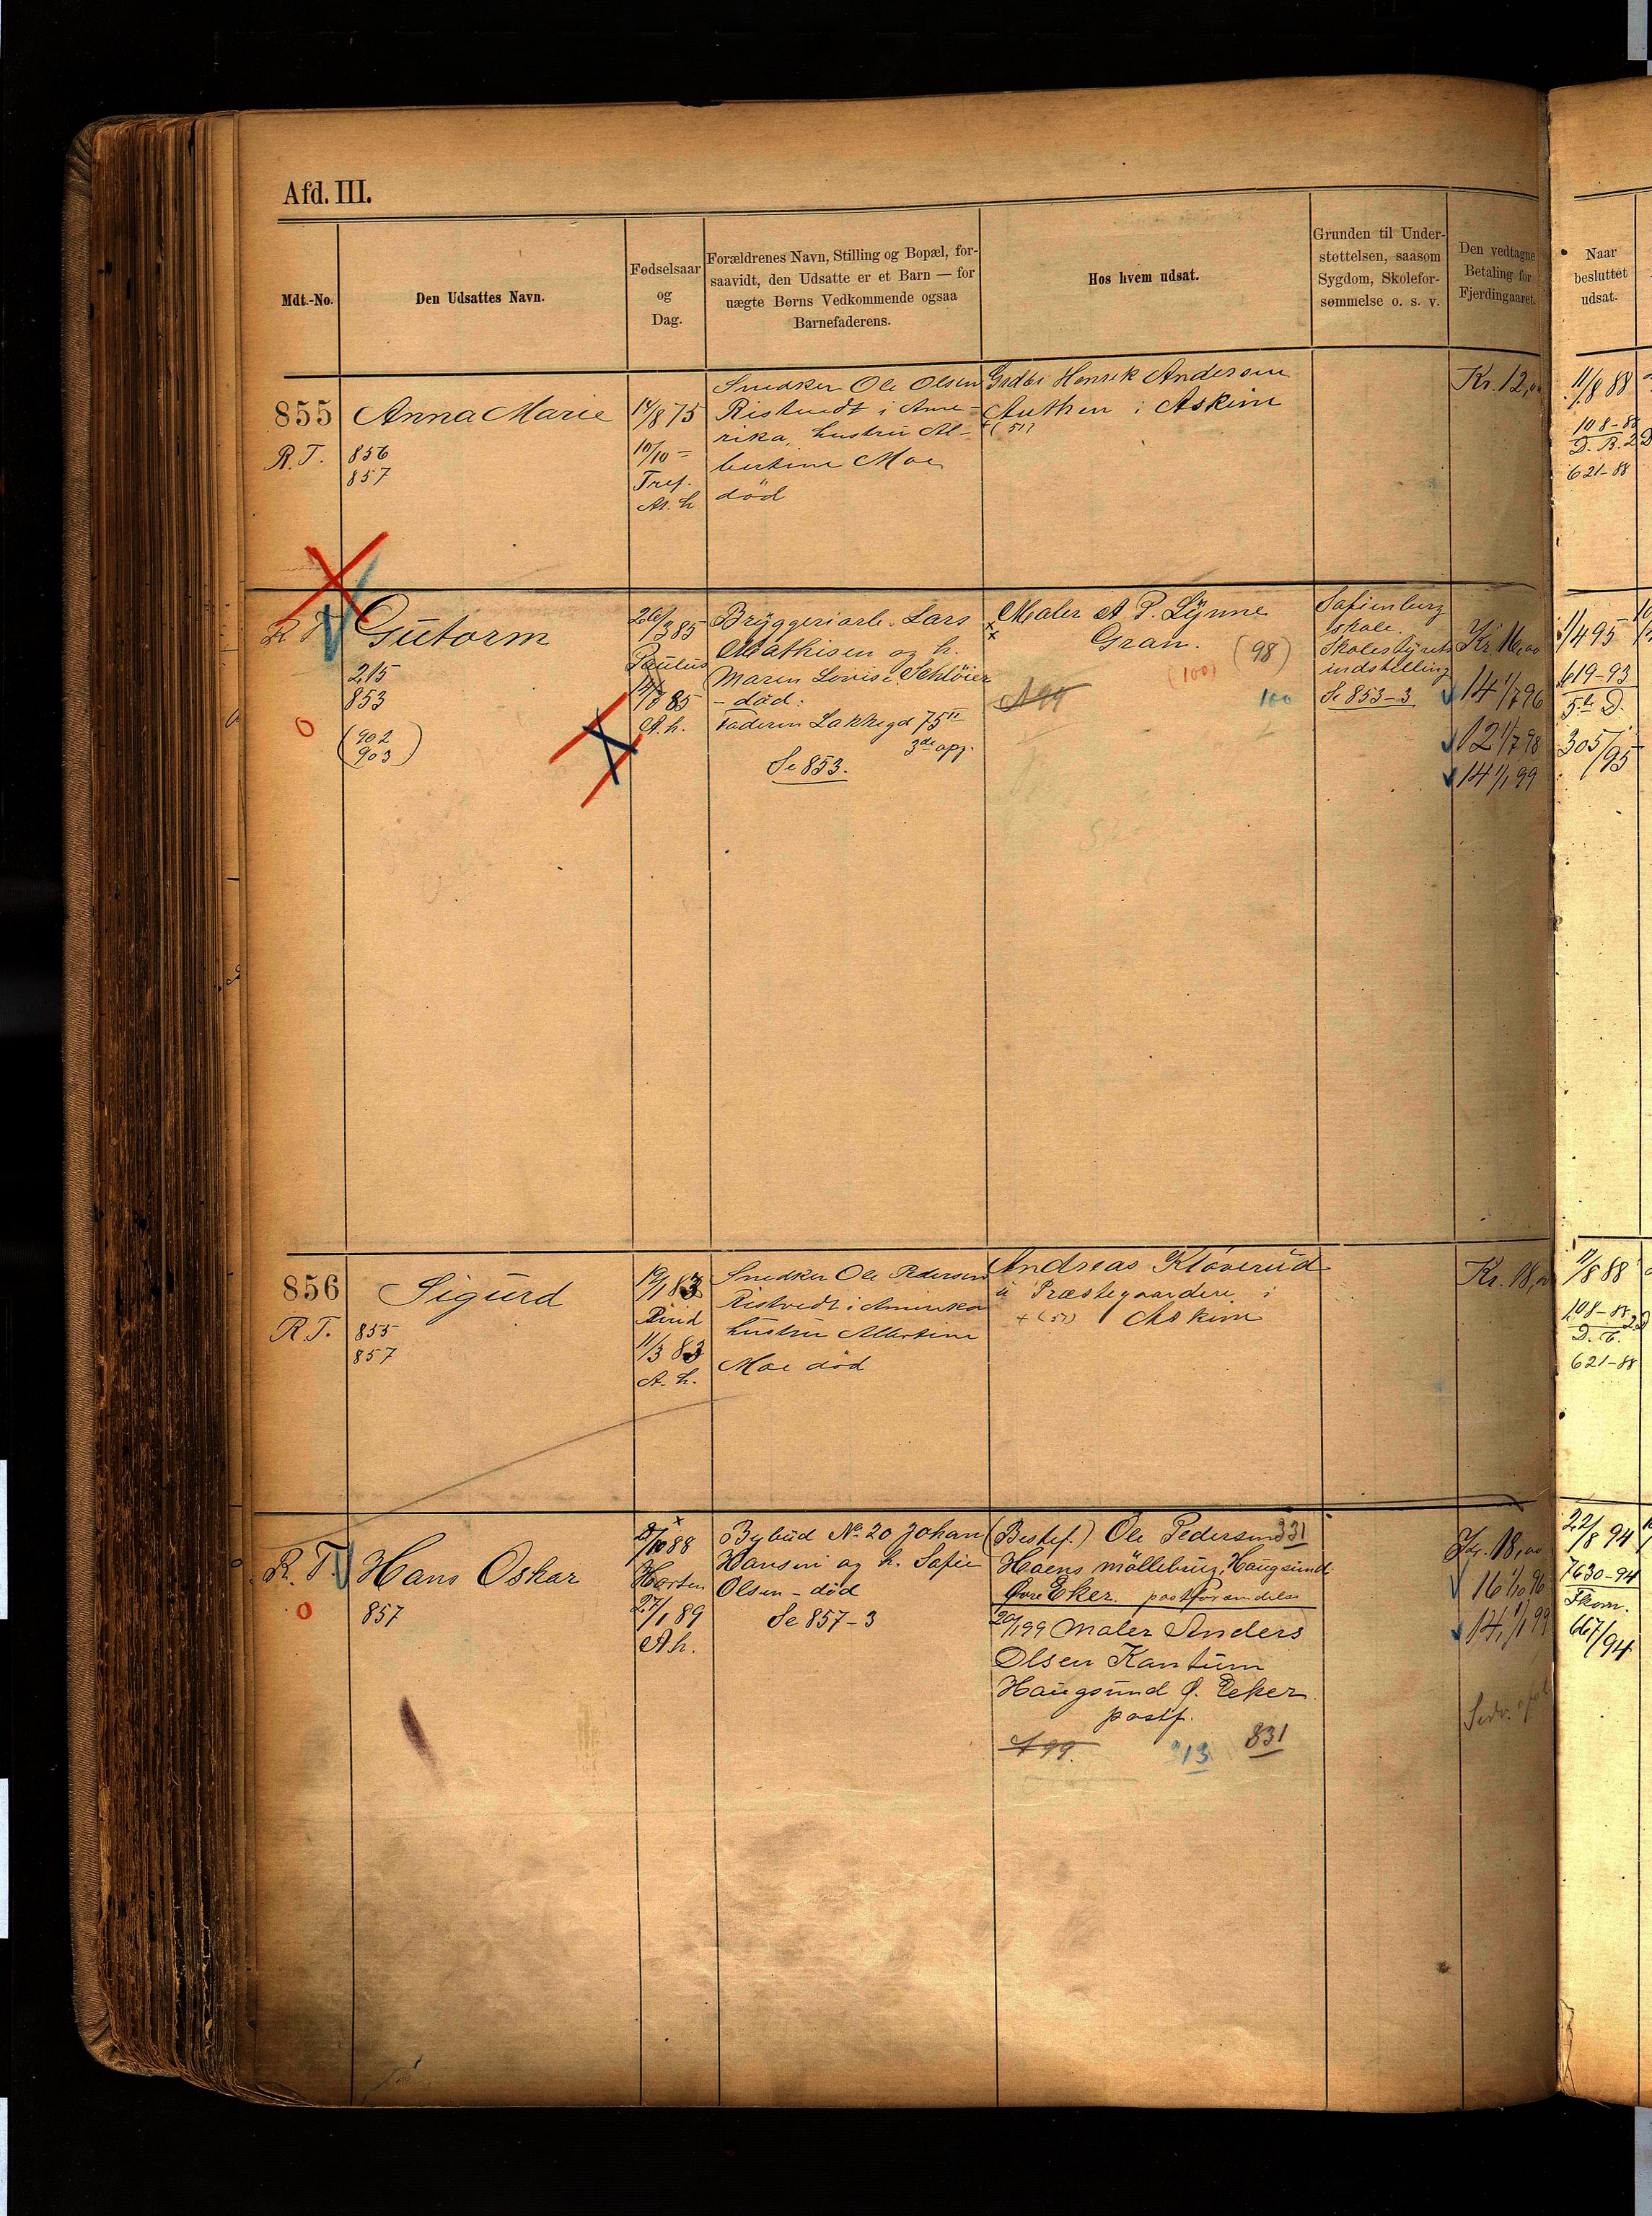 Afd. III.
Mdt.-No.
Den Udsattes Navn.
Fødselsaar
og
Dag.
Forældrenes Navn, Stilling og Bopæl, for-
saavidt, den Udsatte er et Barn — for
uægte Børns Vedkommende ogsaa
Barnefaderens.
Hos hvem udsat.
Grunden til Under-
støttelsen, saasom
Sygdom, Skolefor-
sømmelse o. s. v.
Den vedtagne
Betaling for
Fjerdingaaret.
Naar
besluttet
udsat.
855
R. T.
Anna Marie
856
857
14/8 75
10/10 =
Tref.
A. h.
Snedker Ole Olsen
Ristvedt i Ame-
rika, hustru Al-
bertine Moe
död
Gadbr Henrik Andersen
Authen i Askim
+(51)
Kr. 12,00
11/8 88
108-88
D. B. 2 D
621-88
R T
Gutorm
215
853
(902
903)
0
26/3 85
Paulus
12/7 85
A. h.
Bryggeriarb. Lars
Mathisen og h.
Maren Lovise Schlöier
- död:
Faderen Lakkegd 75 II
3de opg.
Se 853.
Maler A. P. Lynne
Gran.
(98)
(100)
A 99
100
Sofienberg
skole.
Skolestyrets
indstilling
Se 853-3
Kr 16,00
14 1/7 96
12 1/7 98
14 1/1 99
1/4 95
619-93
5te D.
305/95
856
R. T.
Sigurd
855
857
19/1 83
Eivid
11/3 83
A. h.
Snedker Ole Pedersen
Ristvedt i Amerika
hustru Albertine
Moe död
Andreas Kloverud
u Præstegaarden i
+(51) Askim
Kr. 18,00
11/8 88
108-88
621-88
R. T.
0
Hans Oskar
857
2/10 88
Horten
27/1 89
A h.
Bybud No 20 Johan
Hansen og h. Sofie
Olsen - död
Se 857-3
(Bestef.) Ole Pedersen 331
Hoens möllebrug, Haugsund
Øvre Eker. postforsendelse
20/1 99 Maler Anders
Olsen Kantum
Haugsund Ø. Eeker
postf.
A 99.
313
831
Kr. 18,00
16 1/10 96
14, 1/1 99
22/8 94
7630-94
Fkom.
667/94